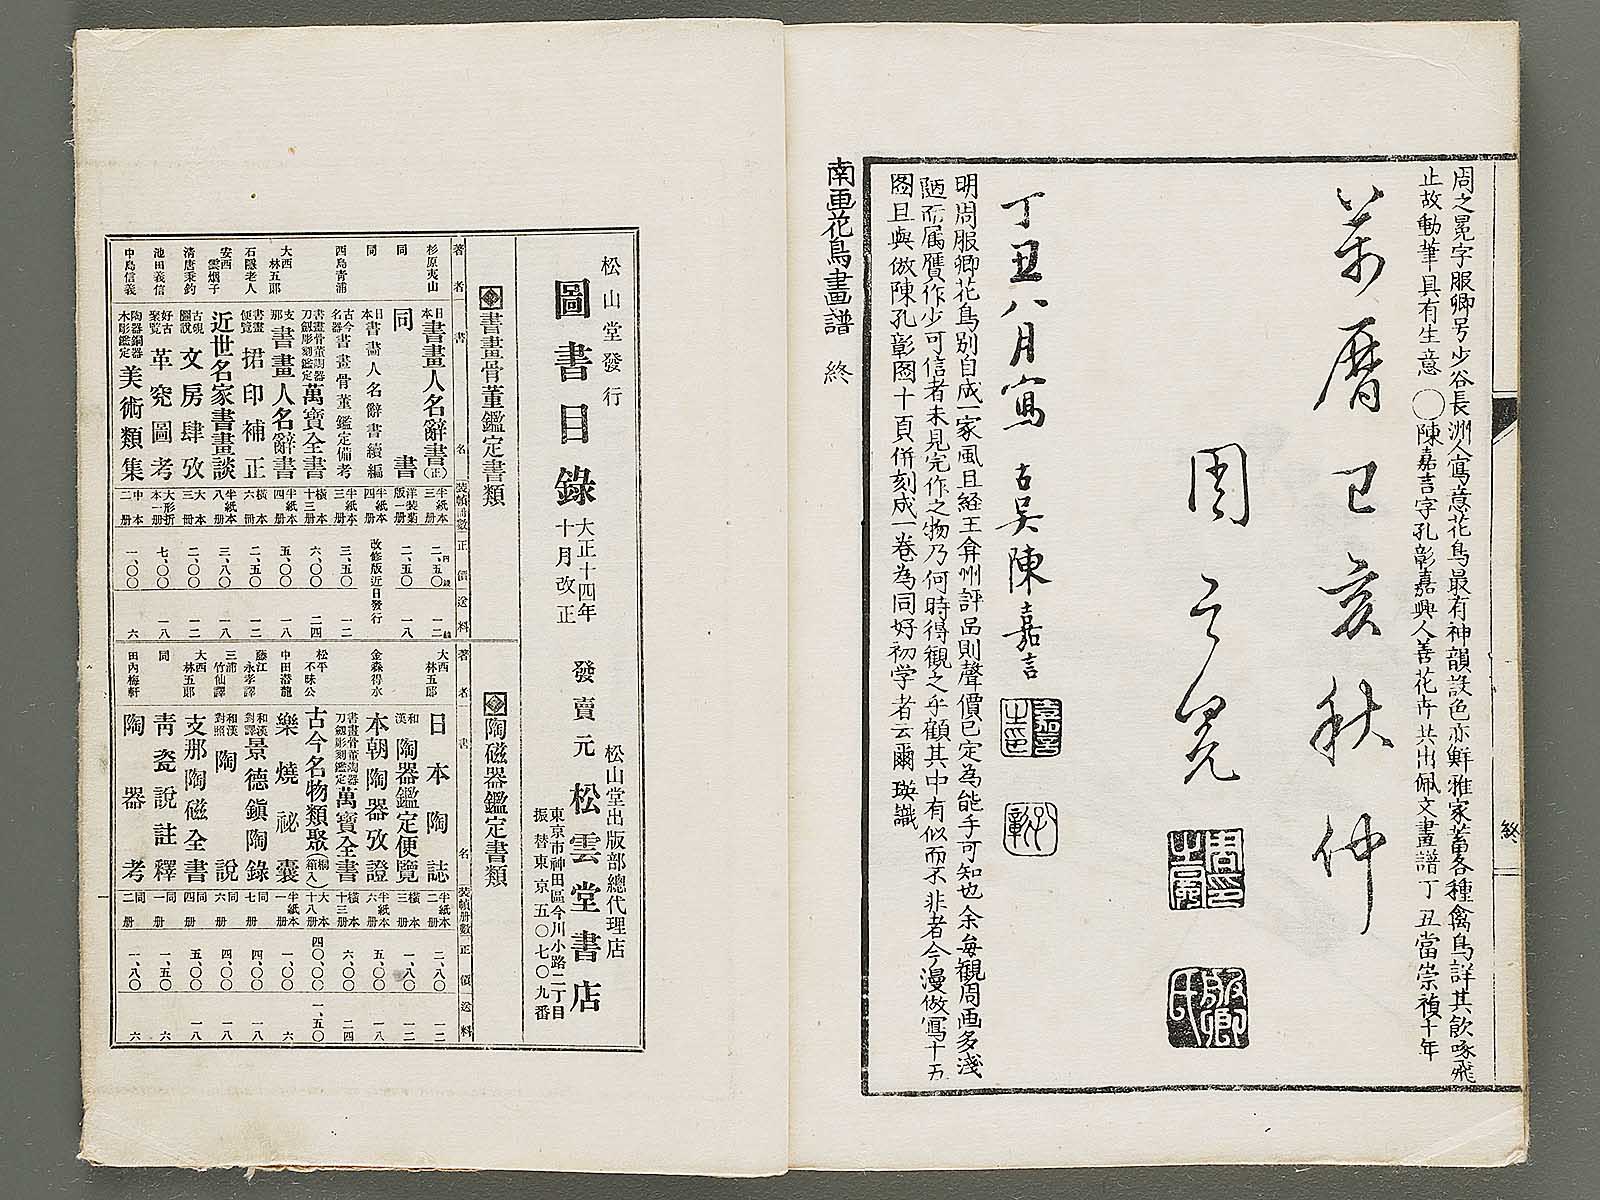 周之冕字服卿号少谷長洲人寫意花鳥最有神韻設色亦鮮雅家蓄各種禽鳥詳其飲啄飛
止故動筆具有生意 ○陳嘉言字孔彰嘉興人善花卉共出佩文畫譜丁丑當崇禎十年
萬曆己亥秋仲
周之冕
周之冕印
服卿氏
丁丑八月寫 古吳陳嘉言
嘉言之印
孔彰
明周服卿花鳥別自成一家風且経王弇州評品則聲價已定為能手可知也余每観周画多淺
陋而属贋作少可信者未見完作之物乃何時得観之乎顧其中有似而不非者今漫倣寫十五
图且與倣陳孔彰图十頁併刻成一巻為同好初学者云爾 瑛識
南画花鳥畫譜 終
終
松山堂發行
圖書目錄 大正十四年十月改正
發賣元 松山堂出版部總代理店 松雲堂書店
東京市神田區今川小路二丁目
振替東京五〇七〇九番
書畫骨董鑑定書類
著者 書名 裝幀冊數 正價 送料
杉原夷山 日本書畫人名辭書(正) 半紙本三册 二、五〇 一二
同 同書 洋裝菊版一册 二、五〇 一八
同 日本書畫人名辭書續編 半紙本四册 改修版近日發行
西島青浦 古今名器書畫骨董鑑定備考 半紙本三册 三、五〇 一二
書畫骨董陶器刀劔彫刻鑑定萬寶全書 橫本十三册 六、〇〇 二四
大西林五郎 支那書畫人名辭書 半紙本四册 五、〇〇 一八
石隱老人 書畫便覧捃印補正 橫本六冊 二、五〇 一二
安西雲烟子 近世名家書畫談 半紙本八册 三、八〇 一八
清唐秉鈞 古硯圖說文房肆攷 大本三冊 二、〇〇 一二
池田義信 好古案覧革究圖考 大形折本一册 七、〇〇 一八
中島信義 陶器銅器木彫鑑定美術類集 中本二册 一、〇〇 六
陶磁器鑑定書類
著者 書名 裝幀册數 正價 送料
大西林五郎 日本陶誌 半紙本二册 二、八〇 一二
和漢陶器鑑定便覽 橫本三册 一、八〇 一二
金森得水 本朝陶器攷證 半紙本六册 五、〇〇 一八
書畫骨董陶器刀劔彫刻鑑定萬寶全書 橫本十三册 六、〇〇 二四
松平不昧公 古今名物類聚(桐箱入) 大本十八册 四〇、〇〇 一、五〇
中田潜龍 樂燒祕囊 半紙本一册 一、〇〇 六
藤江永孝譯 和漢對譯景德鎮陶錄 同七册 四、〇〇 一八
三浦竹仙譯 和漢對照陶說 同六册 四、〇〇 一八
大西林五郎 支那陶磁全書 同四册 五、〇〇 一八
同 靑瓷說註釋 同一册 一、五〇 六
田內梅軒 陶器考 同二册 一、八〇 六